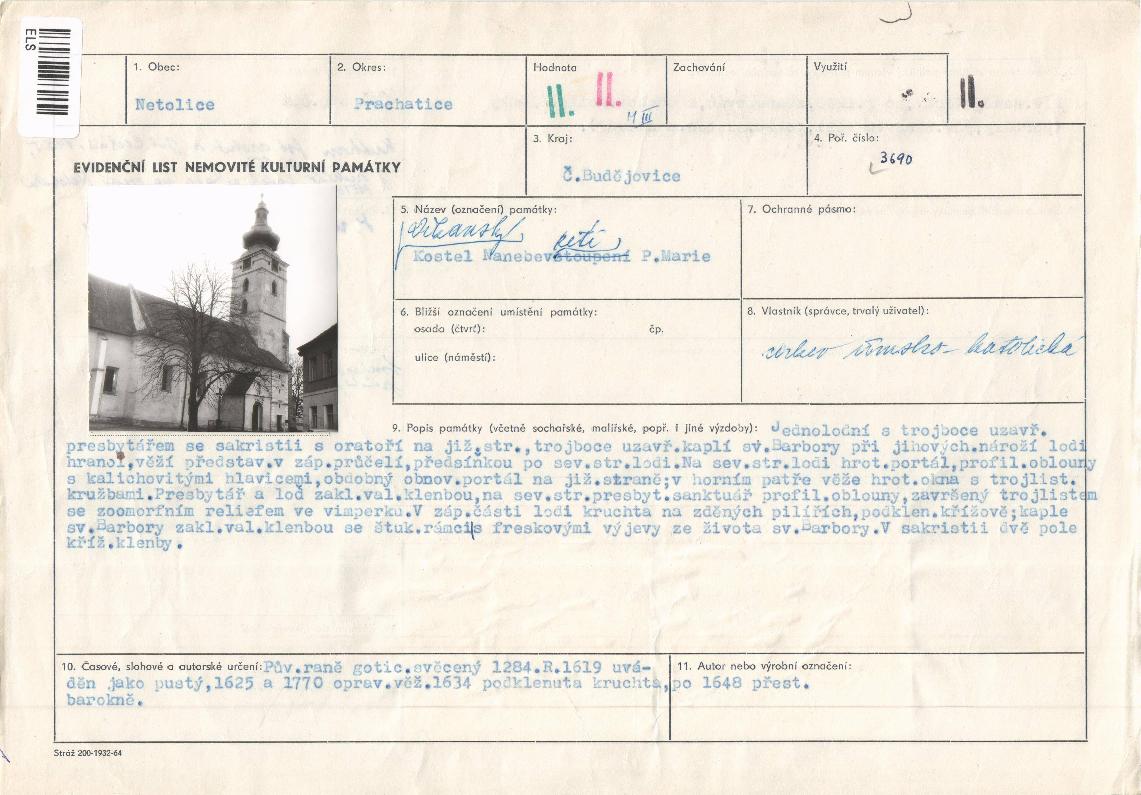 ELS
1. Obec:
Netolice
2. Okres:
Prachatice
Hodnota
II.
II.
Zachování
Využití
II.
EVIDENČNÍ LIST NEMOVITÉ KULTURNÍ PAMÁTKY
3. Kraj:
Č.Budějovice
4. Poř. číslo:
3690
5. Název (označení) památky:
děkanský
etí
Kostel Nanebevstoupení P.Marie
7. Ochranné pásmo:
6. Bližší označení umístění památky:
osada (čtvrť): čp.
ulice (náměstí):
8. Vlastník (správce, trvalý uživatel):
církev římsko-katolická
9. Popis památky (včetně sochařské, malířské, popř. i jiné výzdoby): Jednolodní s trojboce uzavř.
presbytářem se sakristii s oratoří na již.str.,trojboce uzavř.kaplí sv.Barbory při jihových.nároží lodi
hranol,věží představ.v záp.průčelí,předsínkou po sev.str.lodi.Na sev.str.lodi hrot.portál,profil.oblouny
s kalichovitými hlavicemi,obdobný obnov.portál na již.straně;v horním patře věže hrot.okna s trojlist.
kružbami.Presbytář a loď zakl.val.klenbou,na sev.str.presbyt.sanktuář profil.oblouny,završený trojlistem
se zoomorfním reliefem ve vimperku.V záp.části lodi kruchta na zděných pilířích,podklen.křížově;kaple
sv.Barbory zakl.val.klenbou se štuk.rámci s freskovými výjevy ze života sv.Barbory.V sakristii dvě pole
kříž.klenby.
10. Časové, slohové a autorské určení: Pův.raně gotic.svěcený 1284.R.1619 uvá-
děn jako pustý,1625 a 1770 oprav.věž.1634 podklenuta kruchta,po 1648 přest.
barokně.
11. Autor nebo výrobní označení:
Stráž 200-1932-64